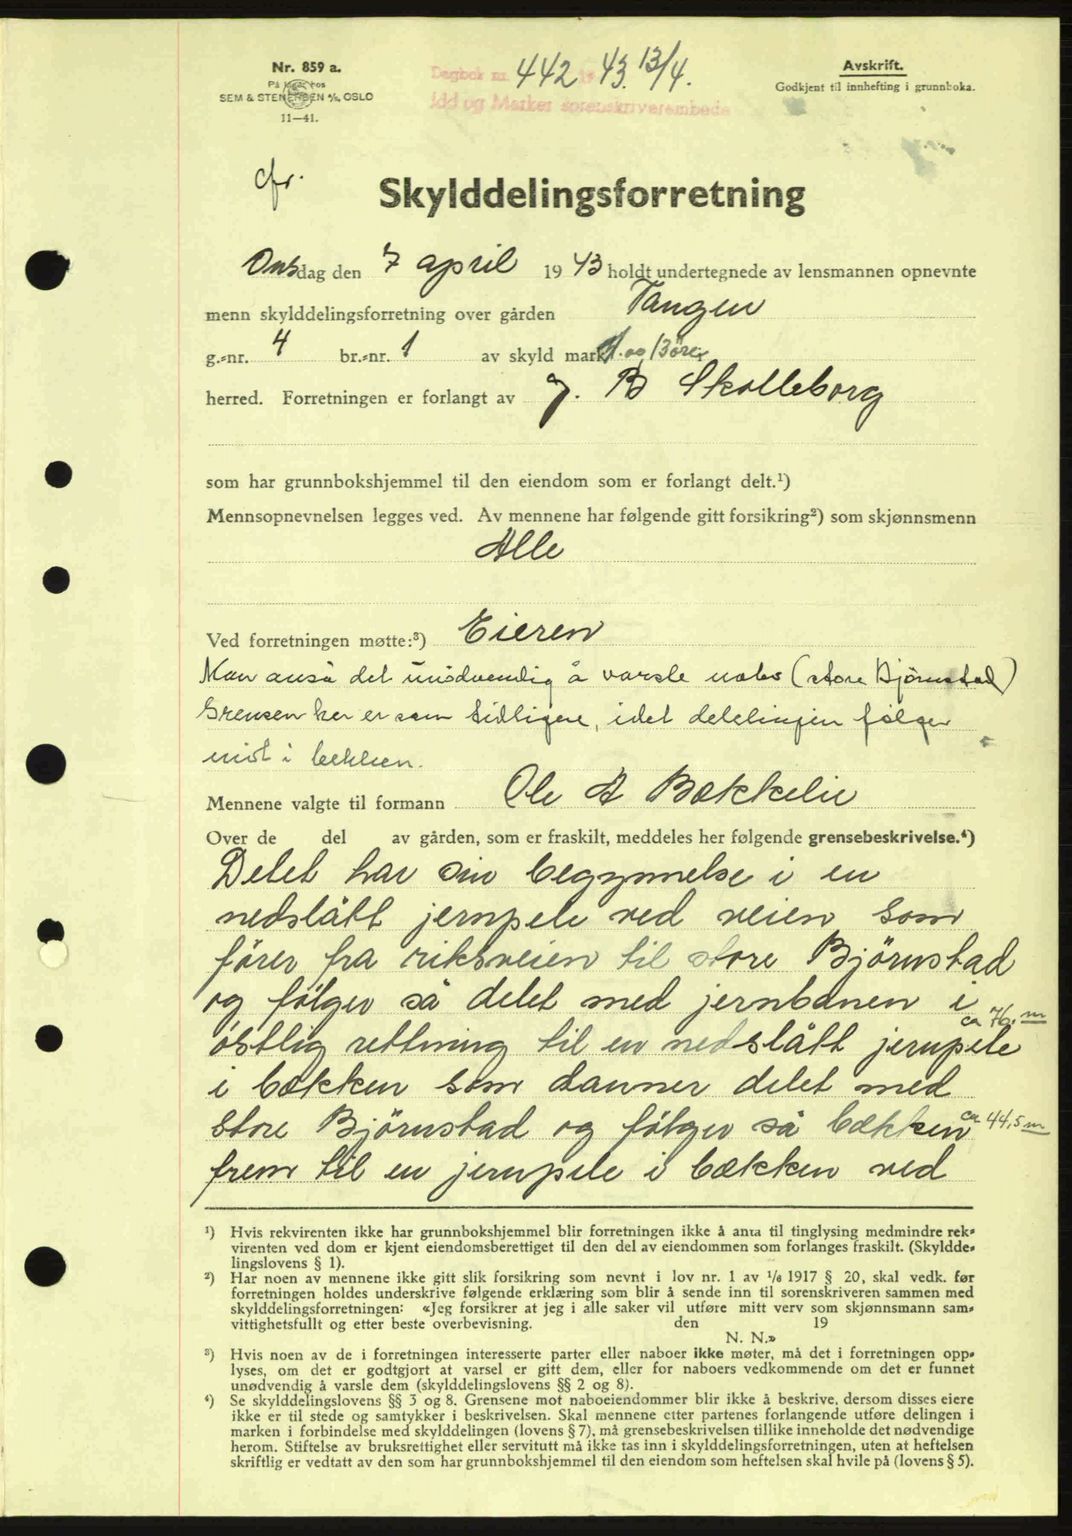 Nr. 859 a.
På lager hos
SEM & STENERSEN A/S, OSLO
11—41.
Dagbok nr. 442 1943. 13/4.
Idd og Marker sorenskriverembede
Avskrift.
Godkjent til innhefting i grunnboka.
cfr.
Skylddelingsforretning
Onsdag den 7 april 1943 holdt undertegnede av lensmannen opnevnte
menn skylddelingsforretning over gården Tangen
g.-nr. 4 br.-nr. 1 av skyld mark
herred. Forretningen er forlangt av J. B Skolleborg
som har grunnbokshjemmel til den eiendom som er forlangt delt.¹)
Mennsopnevnelsen legges ved. Av mennene har følgende gitt forsikring²) som skjønnsmenn
Alle
Ved forretningen møtte:³) Eieren
Man anså det unödvendig å varsle nabo (store Björnstad)
Grensen her er som tidligere, idet delelinjen følger
midt i bekken.
Mennene valgte til formann Ole A Bækkelie
Over de del av gården, som er fraskilt, meddeles her følgende grensebeskrivelse.⁴)
Delet har sin begynnelse i en
nedslått jernpele ved veien som
förer fra riksveien til store Björnstad
og fölger så delet med jernbanen i
ca 76. m
östlig rettning til en nedslått jernpele
i bækken som danner delet med
store Björnstad og fölger så bækken ca 44,5 m
frem til en jernpele i bækken ved
¹) Hvis rekvirenten ikke har grunnbokshjemmel blir forretningen ikke å anta til tinglysing medmindre rek-
virenten ved dom er kjent eiendomsberettiget til den del av eiendommen som forlanges fraskilt. (Skyldde-
lingslovens § 1).
²) Har noen av mennene ikke gitt slik forsikring som nevnt i lov nr. 1 av 1/6 1917 § 20, skal vedk. før
forretningen holdes underskrive følgende erklæring som blir å sende inn til sorenskriveren sammen med
skylddelingsforretningen: «Jeg forsikrer at jeg i alle saker vil utføre mitt verv som skjønnsmann sam-
vittighetsfullt og etter beste overbevisning. den 19
N. N.»
³) Hvis noen av de i forretningen interesserte parter eller naboer ikke møter, må det i forretningen opp-
lyses, om det er godtgjort at varsel er gitt dem, eller for naboers vedkommende om det er funnet
unødvendig å varsle dem (skylddelingslovens §§ 2 og 8).
⁴) Se skylddelingslovens §§ 3 og 8. Grensene mot naboeiendommer blir ikke å beskrive, dersom disses eiere
ikke er til stede og samtykker i beskrivelsen. Skal mennene etter partenes forlangende utføre delingen i
marken i forbindelse med skylddelingen (lovens § 7), må grensebeskrivelsen tillike inneholde det nødvendige
herom. Stiftelse av bruksrettighet eller servitutt må ikke tas inn i skylddelingsforretningen, uten at heftelsen
skriftlig er vedtatt av den som har grunnbokshjemmel til den eiendom som heftelsen skal hvile på (lovens § 5).